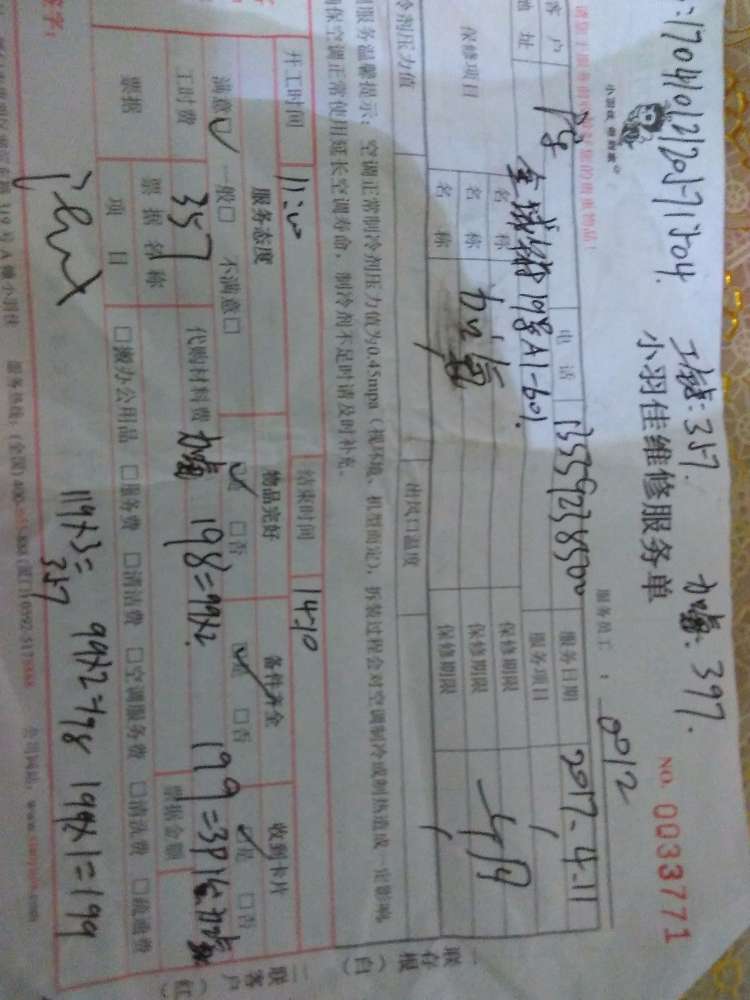 :17041012120571704. 工时费:357. 加氟:397.
小羽佳 еп到家
小羽佳维修服务单
NO. 0033771
服务员工: 0012
客户
电话 13559238500
服务日期 2017-4-11
地址
19号A1-601
服务项目
保修项目
名称
保修期限
名称 加氟
保修期限
名称
保修期限
冷剂压力值
出风口温度
服务温馨提示:空调正常制冷剂压力值为0.45mpa(视环境、机型而定),拆装过程会对空调制冷或制热造成一定影响,
保空调正常使用延长空调寿命,制冷剂不足时请及时补充。
开工时间 11:00
结束时间 14:10
服务态度
物品完好
备件齐全
收到卡片
满意□ 一般□ 不满意□
□是 □否
□是 □否
□是 □否
工时费 357
代购材料费 加氟 198=99×2. 199=397元加氟
票据
票据名称
票据金额
项目
□搬办公用品 □服务费 □清洁费 □空调服务费 □清洗费 □疏通费
119×3=357 99×2=198 199×1=199
签字:
319号A幢小羽佳
服务热线:(全国)400
公司网站:
一联存根(白)
二联客户(红)